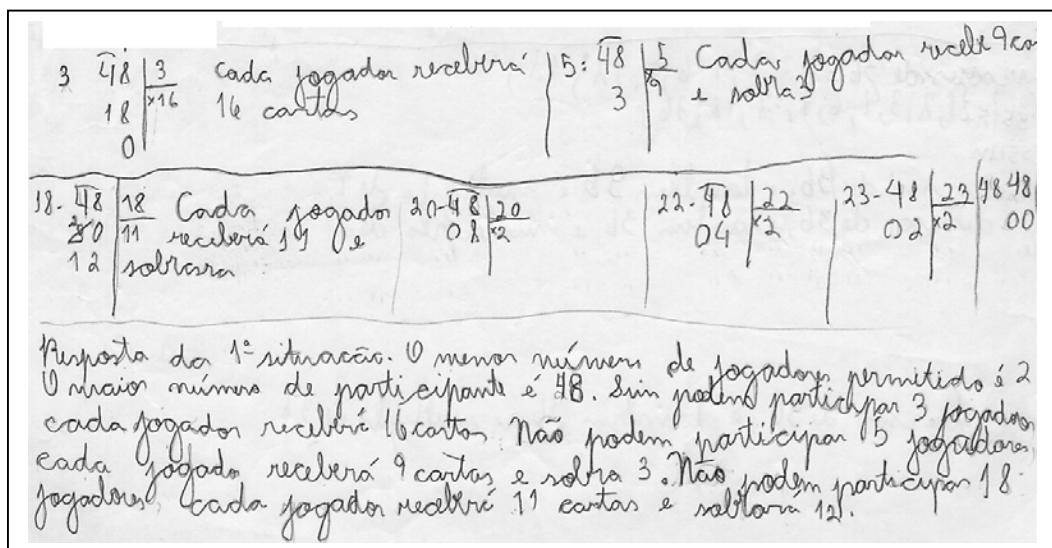 3 48 | 3 Cada jogador receberá
18 ×16 16 cartas
0
5: 48 | 5 Cada jogador recebe 9 car
3 9 e sobra 3
18- 48 | 18 Cada jogador
30 11 receberá 11 e
12 sobrara
20- 48 | 20
08 ×2
22- 48 | 22
04 ×2
23- 48 | 23
02 ×2
48 48
00
Resposta da 1ª situação. O menor número de jogadores permitido é 2
O maior número de participante é 48. Sim podem participar 3 jogadores
cada jogador receberá 16 cartas Não podem participar 5 jogadores,
cada jogado receberá 9 cartas e sobra 3. Não podem participar 18
jogadores, cada jogador receberá 11 cartas e sobrara 12.